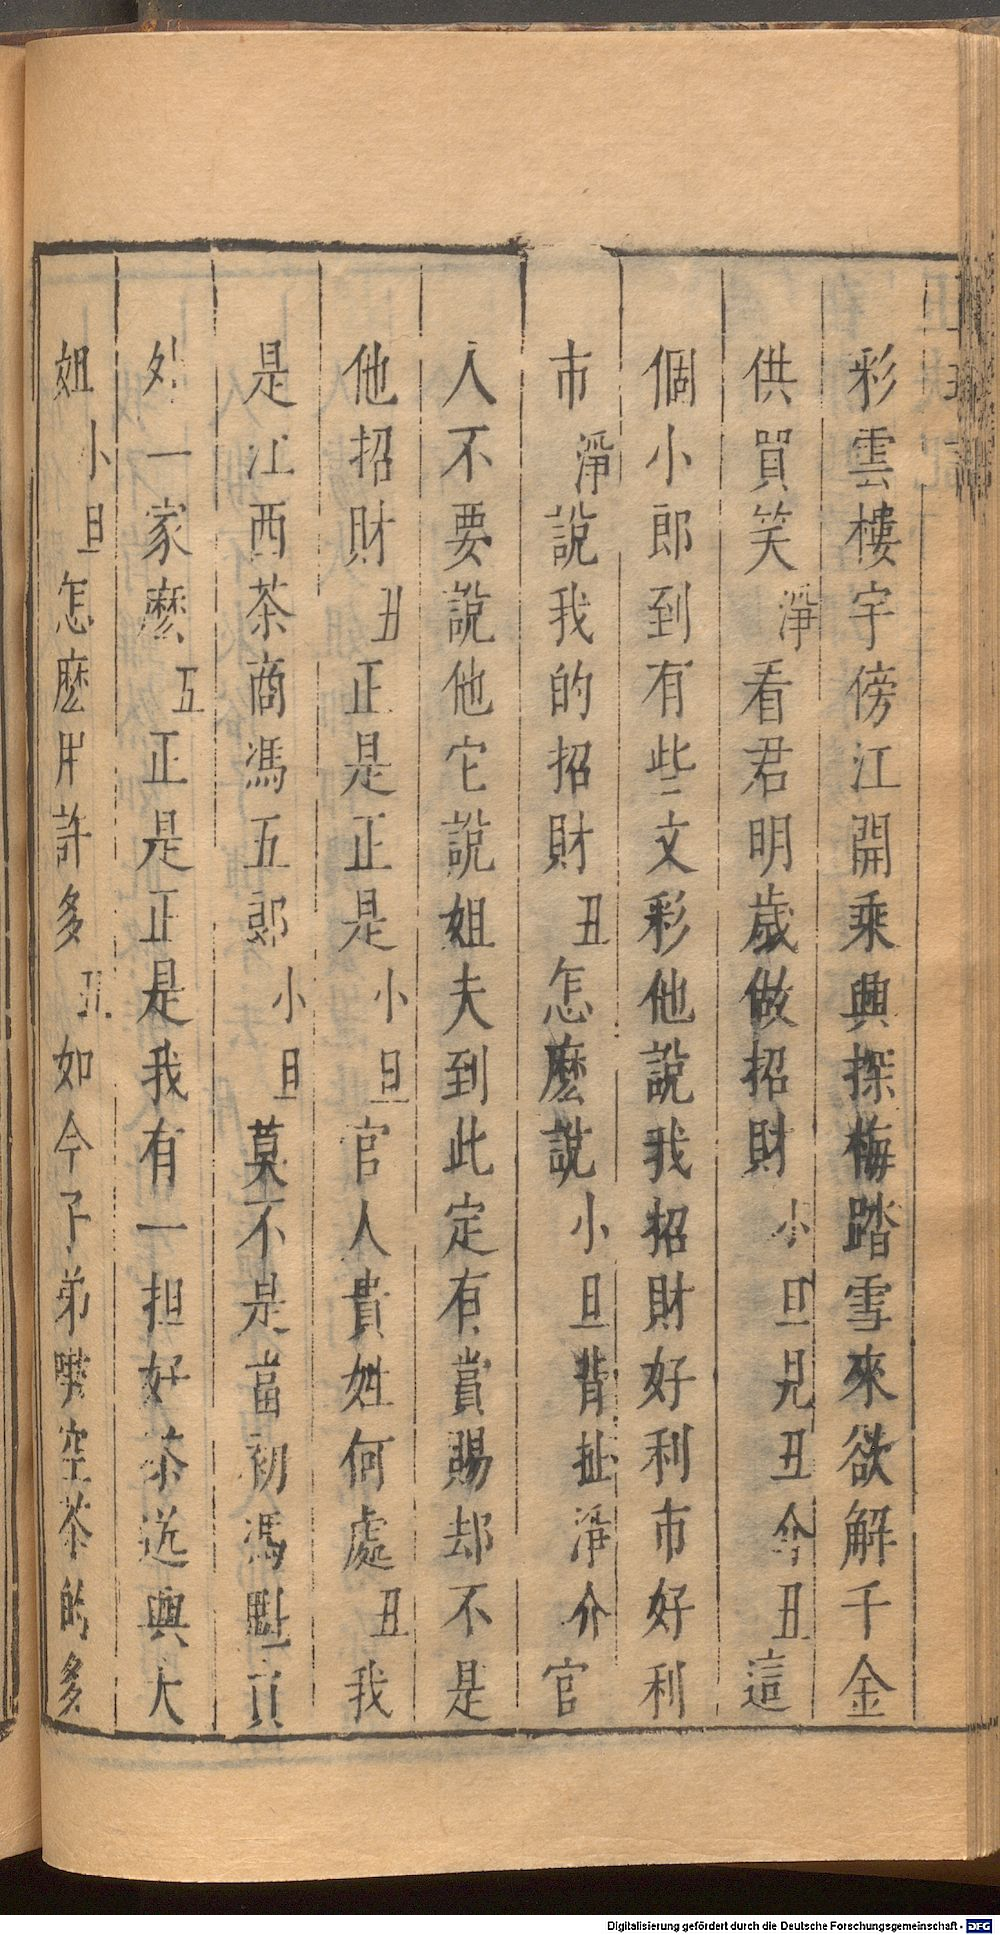 彩雲樓宇傍江開乘興探梅踏雪來欲解千金
供買笑淨看君明歲做招財小旦見丑介丑這
個小郎到有些文彩他說我招財好利市好利
市淨說我的招財丑怎麼說小旦背扯淨介官
人不要說他它說姐夫到此定有賞賜却不是
他招財丑正是正是小旦官人貴姓何處丑我
是江西茶商馮五郎小旦莫不是當初馮魁員
外一家麽丑正是正是我有一担好茶送與大
姐小旦怎麽用許多丑如今子弟喫空茶的多
Digitalisierung gefördert durch die Deutsche Forschungsgemeinschaft - DFG